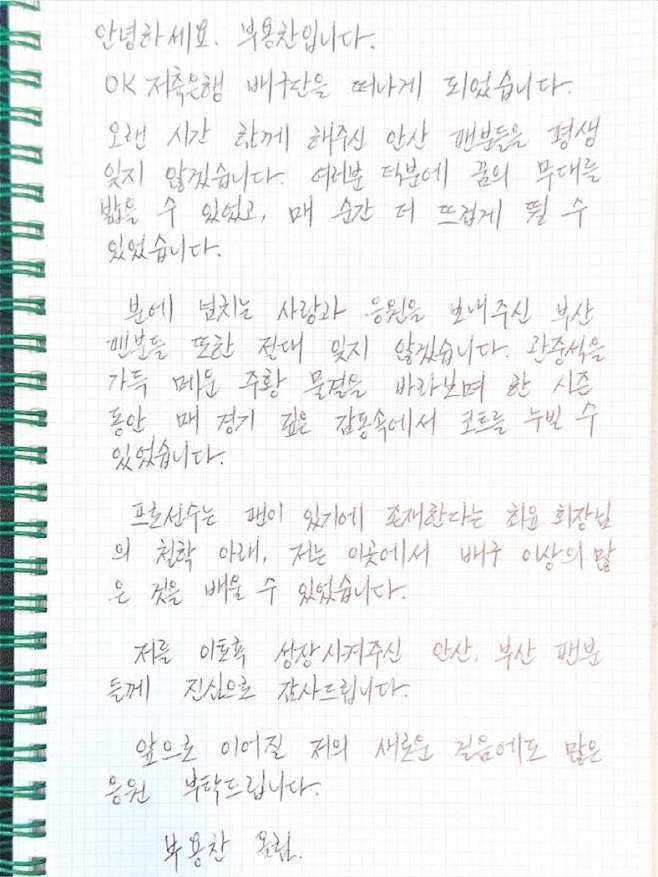 안녕하세요. 부용찬입니다.
OK 저축은행 배구단을 떠나게 되었습니다.
오랜 시간 함께 해주신 안산 팬분들을 평생
잊지 않겠습니다. 여러분 덕분에 꿈의 무대를
밟을 수 있었고, 매 순간 더 뜨겁게 뛸 수
있었습니다.
분에 넘치는 사랑과 응원을 보내주신 부산
팬분들 또한 절대 잊지 않겠습니다. 관중석을
가득 메운 주황 물결을 바라보며 한 시즌
동안 매 경기 깊은 감동속에서 코트를 누빌 수
있었습니다.
프로선수는 팬이 있기에 존재한다는 최윤 회장님
의 철학 아래, 저는 이곳에서 배구 이상의 많
은 것을 배울 수 있었습니다.
저를 이토록 성장시켜주신 안산, 부산 팬분
들께 진심으로 감사드립니다.
앞으로 이어질 저의 새로운 걸음에도 많은
응원 부탁드립니다.
부용찬 올림.